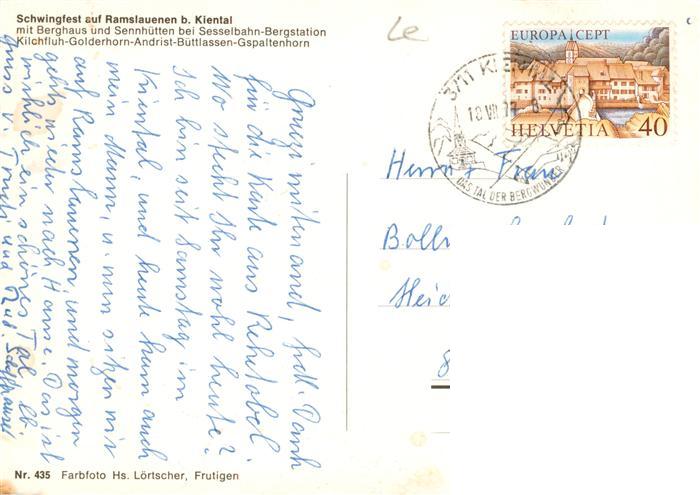 Schwingfest auf Ramslauenen b. Kiental
mit Berghaus und Sennhütten bei Sesselbahn-Bergstation
Kilchfluh-Golderhorn-Andrist-Büttlassen-Gspaltenhorn
Le
EUROPA CEPT
HELVETIA 40
3711 KIENTAL
18 VII 77
DAS TAL DER BERGWUNDER
Herrn + Frau
Boll
Heid
Gruezi miteinand, herzl. Dank
für die Karte aus Rehetobel.
Wo steckt Ihr wohl heute?
Ich bin seit Samstag im
Kiental, und heute kam auch
mein Mann, u. nun sitzen wir
auf Ramslauenen, und morgen
gehts wieder nach Hause. Das ist
wirklich ein schönes Tal. Lb.
Gruss v. Trudi und Rud.
Nr. 435 Farbfoto Hs. Lörtscher, Frutigen